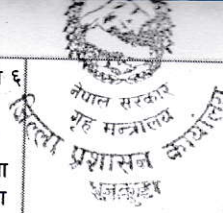 ६
नेपाल सरकार
गृह मन्त्रालय
जिल्ला प्रशासन कार्यालय
ा
ा